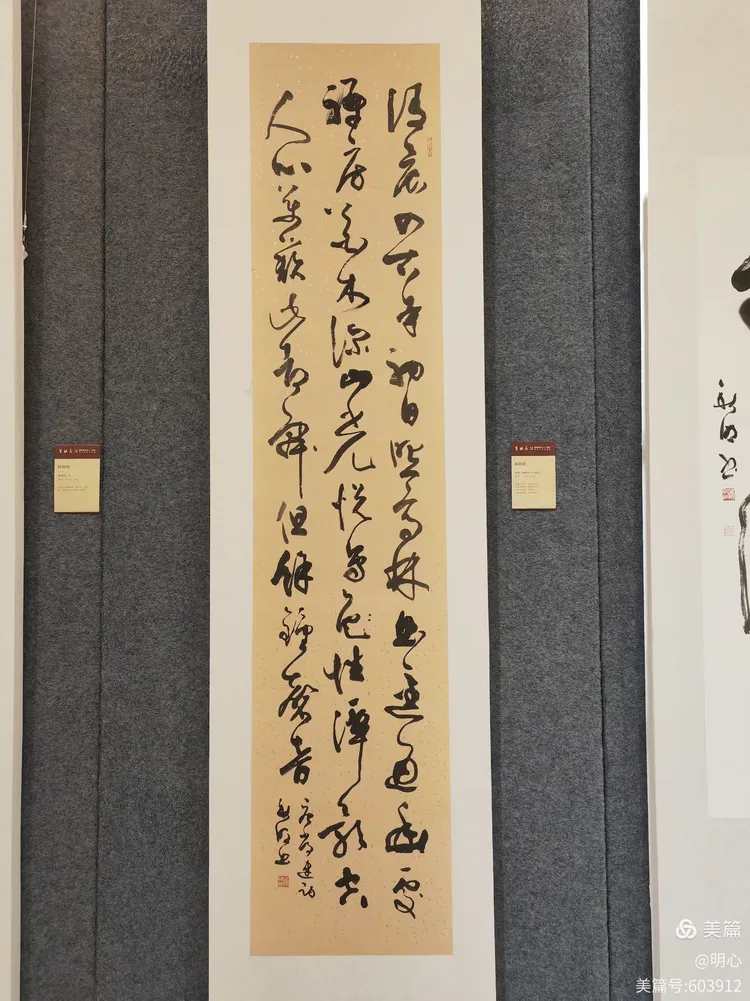 清晨入古寺初日照高林曲迳通幽處
禪房花木深山光悦鳥色性潭影空
人心萬籟此都寂但餘鐘磬音
唐常建詩
美篇
@明心
美篇号:603912